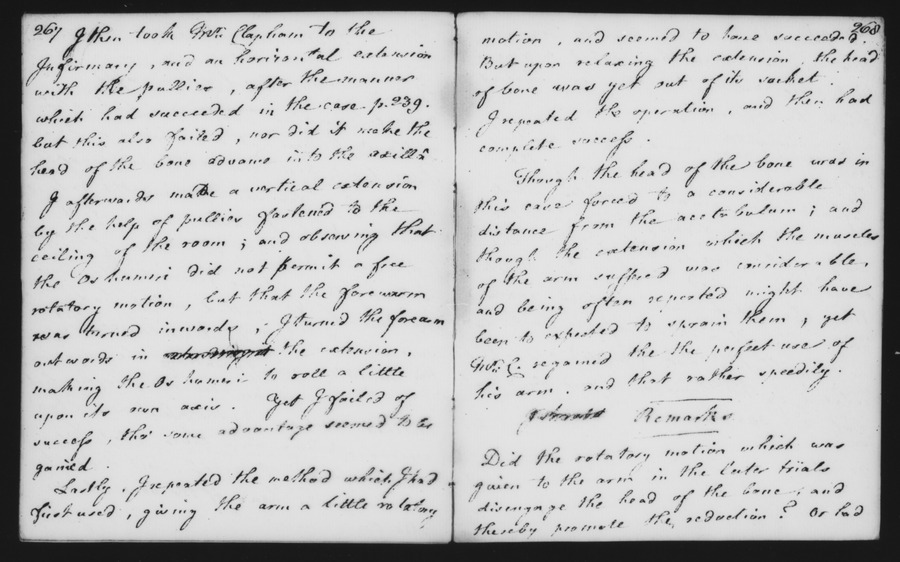 267
I then took Mr. Clapham to the
Infirmary, and an horizontal extension
with the pullies, after the manner
which had succeeded in the case p. 239.
but this also failed, nor did it make the
head of the bone advance into the axilla.
I afterwards made a vertical extension
by the help of pullies fastened to the
ceiling of the room; and observing that
the Os humeri did not permit a free
rotatory motion, but that the forewarm
was turned inwards; I turned the forearm
outwards in the extension,
making the Os humeri to roll a little
upon its own axis. Yet I failed of
success, tho' some advantage seemed to be
gained.
Lastly, I repeated the method which I had
first used, giving the arm a little rotatory
268
motion, and seemed to have succeeded.
But upon relaxing the extension, the head
of bone was yet out of its socket.
I repeated the operation, and then had
complete success.
Though the head of the bone was in
this case forced to a considerable
distance from the acetabulum; and
though the extension which the muscles
of the arm suffered was considerable,
and being often repeated might have
been to expected to sprain them; yet
Mr. C. regained the the perfect use of
his arm, and that rather speedily.
Remarks
Did the rotatory motion which was
given to the arm in the later trials
disengage the head of the bone, and
thereby promote the reduction? Or had